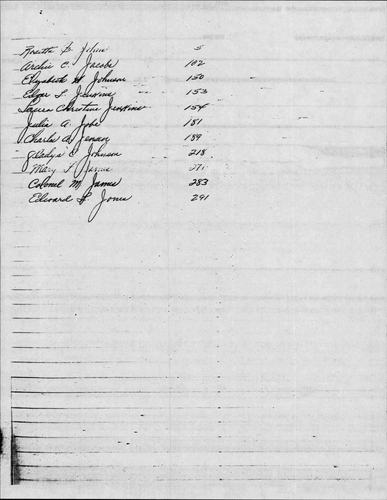 B. John 5
Archie C. Jacobs 102
Elizabeth H Johnson 150
Edgar L. Jenkins 153
Laura Christine Jenkins 154
Julia A. Jobe 181
Charles A. Jensen 189
Gladys C Johnson 218
Mary L. 271
Colonel M. James 283
Edward H Jones 291